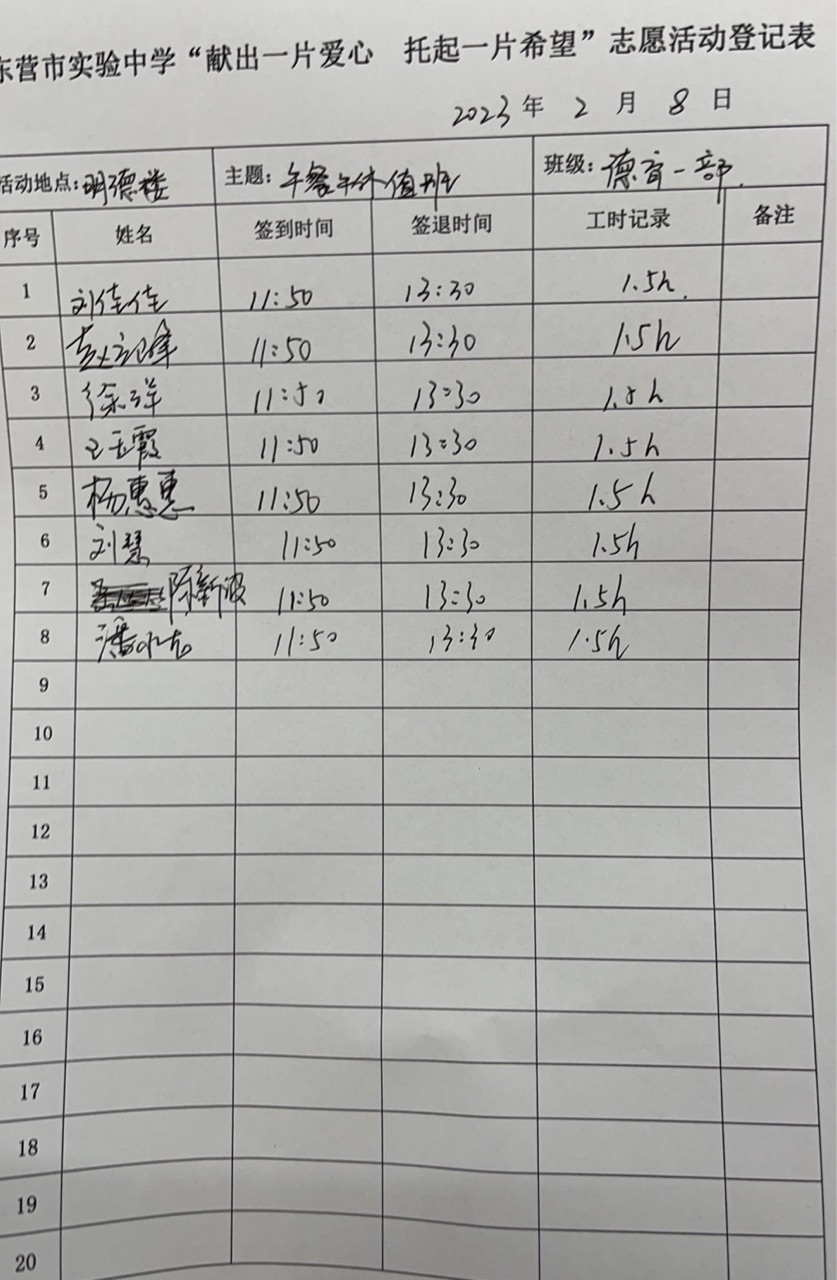 东营市实验中学“献出一片爱心 托起一片希望”志愿活动登记表
2023年 2月 8日
活动地点:明德楼 主题:午餐午休值班 班级:德育一部.
序号 姓名 签到时间 签退时间 工时记录 备注
1 刘佳佳 11:50 13:30 1.5h.
2 赵 11:50 13:30 1.5h
3 徐祥 11:50 13:30 1.5h
4 王玉霞 11:50 13:30 1.5h
5 杨惠惠 11:50 13:30 1.5h
6 刘慧 11:50 13:30 1.5h
7 陈新波 11:50 13:30 1.5h
8 潘 11:50 13:30 1.5h
9
10
11
12
13
14
15
16
17
18
19
20